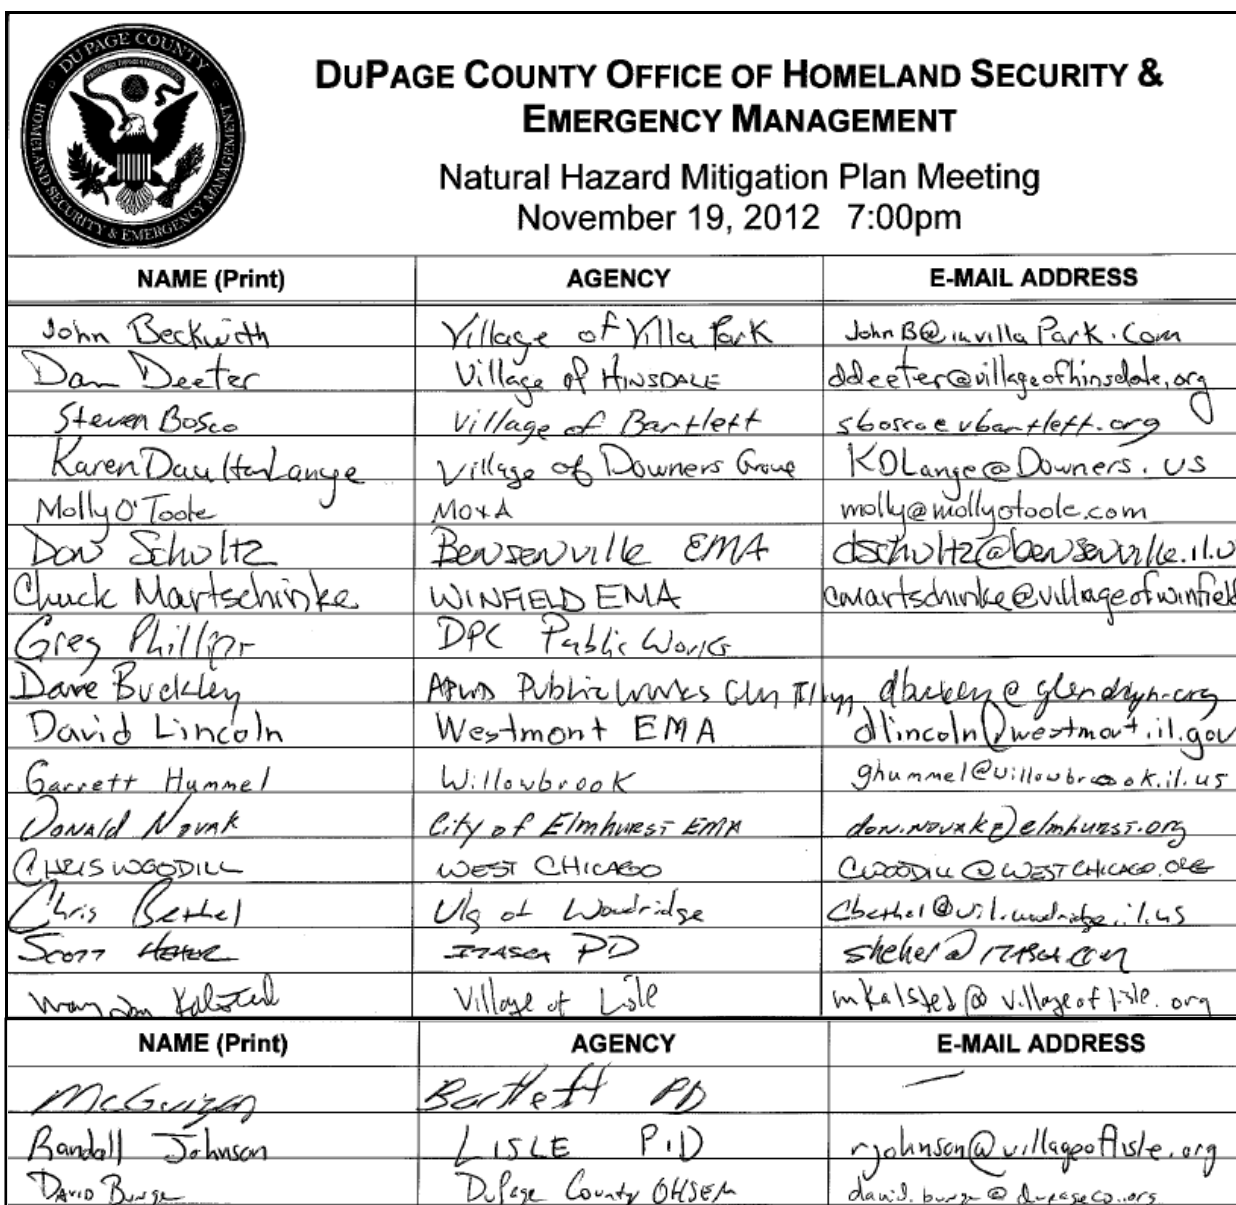 DU PAGE COUNTY
HOMELAND SECURITY & EMERGENCY MANAGEMENT
DUPAGE COUNTY OFFICE OF HOMELAND SECURITY &
EMERGENCY MANAGEMENT
Natural Hazard Mitigation Plan Meeting
November 19, 2012 7:00pm
NAME (Print) AGENCY E-MAIL ADDRESS
John Beckwith Village of Villa Park JohnB@invillaPark.Com
Dan Deeter Village of HINSDALE ddeeter@villageofhinsdale.org
Steven Bosco Village of Bartlett sbosco@vbartlett.org
Karen Daulton Lange Village of Downers Grove KDLange@Downers.us
Molly O'Toole MO&A molly@mollyotoole.com
Don Schultz Bensenville EMA dschultz@bensenville.il.u
Chuck Martschinke WINFIELD EMA cmartschinke@villageofwinfield
Greg Phillips DPC Public Works
Dave Buckley Public Works Glen Ellyn
David Lincoln Westmont EMA dlincoln@westmont.il.gov
Garrett Hummel Willowbrook ghummel@willowbrook.il.us
Donald Novak City of Elmhurst EMA don.novak@elmhurst.org
CHRIS WOODILL WEST CHICAGO CWOODILL@WESTCHICAGO.ORG
Chris Bethel Vlg of Woodridge Cbethel@vil.woodridge.il.us
Scott HEHER ITASCA PD sheher@itasca.com
Kalsted Village of Lisle mkalsted@villageoflisle.org
NAME (Print) AGENCY E-MAIL ADDRESS
McGuigan Bartlett PD —
Randall Johnson LISLE P.D rjohnson@villageoflisle.org
DAVID Burge DuPage County OHSEM david.burge@dupageco.org